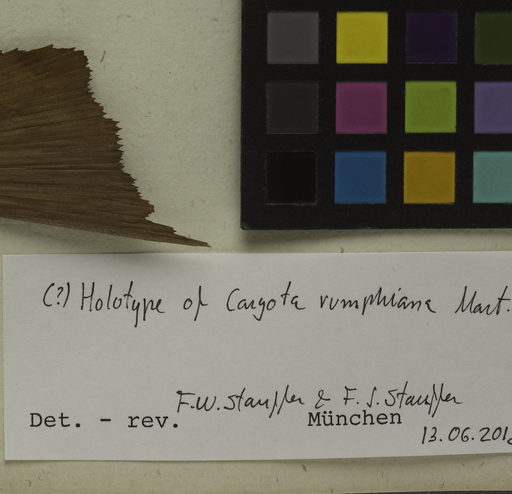 (?) Holotype of Caryota rumphiana Mart.
F.W. Stauffer & F. S. Stauffer
Det. - rev. München
13.06.201